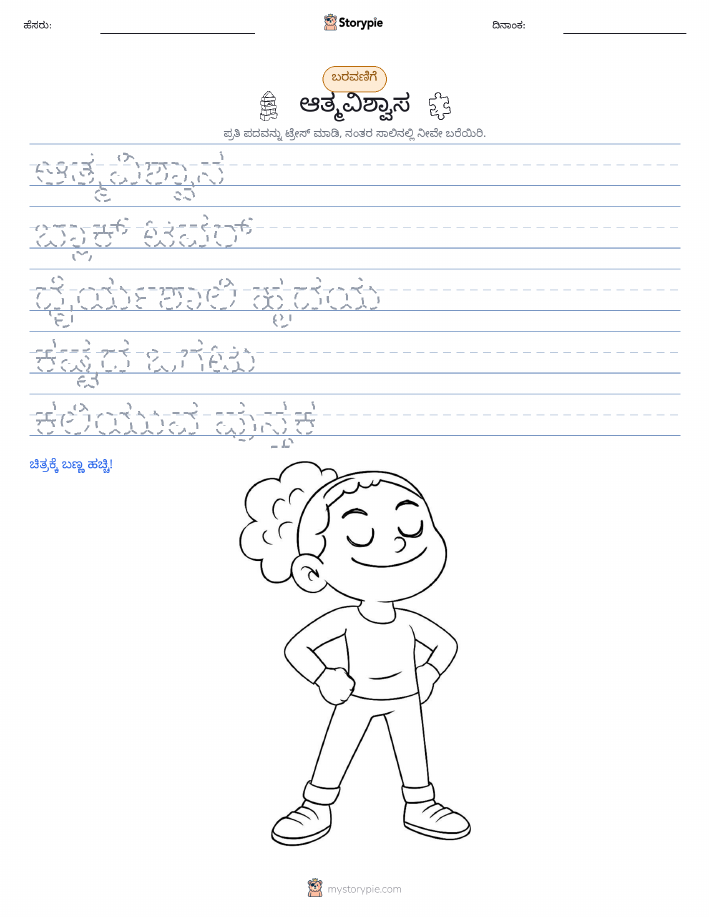 ಹೆಸರು:
Storypie
ದಿನಾಂಕ:
ಬರವಣಿಗೆ
ಆತ್ಮವಿಶ್ವಾಸ
ಪ್ರತಿ ಪದವನ್ನು ಟ್ರೇಸ್ ಮಾಡಿ, ನಂತರ ಸಾಲಿನಲ್ಲಿ ನೀವೇ ಬರೆಯಿರಿ.
ಆತ್ಮವಿಶ್ವಾಸ
ಬ್ಲಾಕ್ ಟವರ್
ಧೈರ್ಯಶಾಲಿ ಹೃದಯ
ಕಷ್ಟದ ಒಗಟು
ಕಲಿಯುವ ಪುಸ್ತಕ
ಚಿತ್ರಕ್ಕೆ ಬಣ್ಣ ಹಚ್ಚಿ!
mystorypie.com